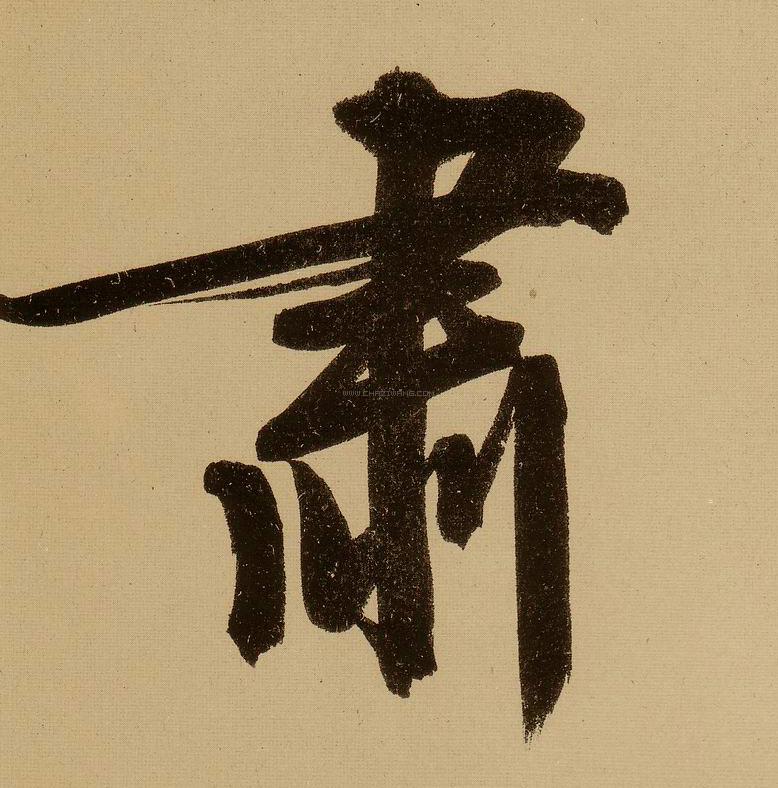 肅
WWW.CHAZIWANG.COM